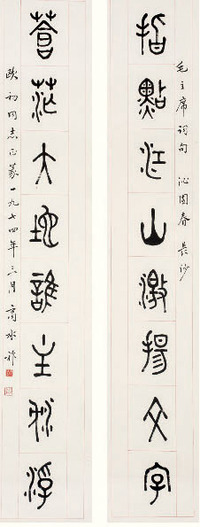 毛主席詞句 沁園春 長沙
指點江山激揚文字
蒼茫大地誰主沈浮
歐初同志正篆 一九七四年三月 商承祚